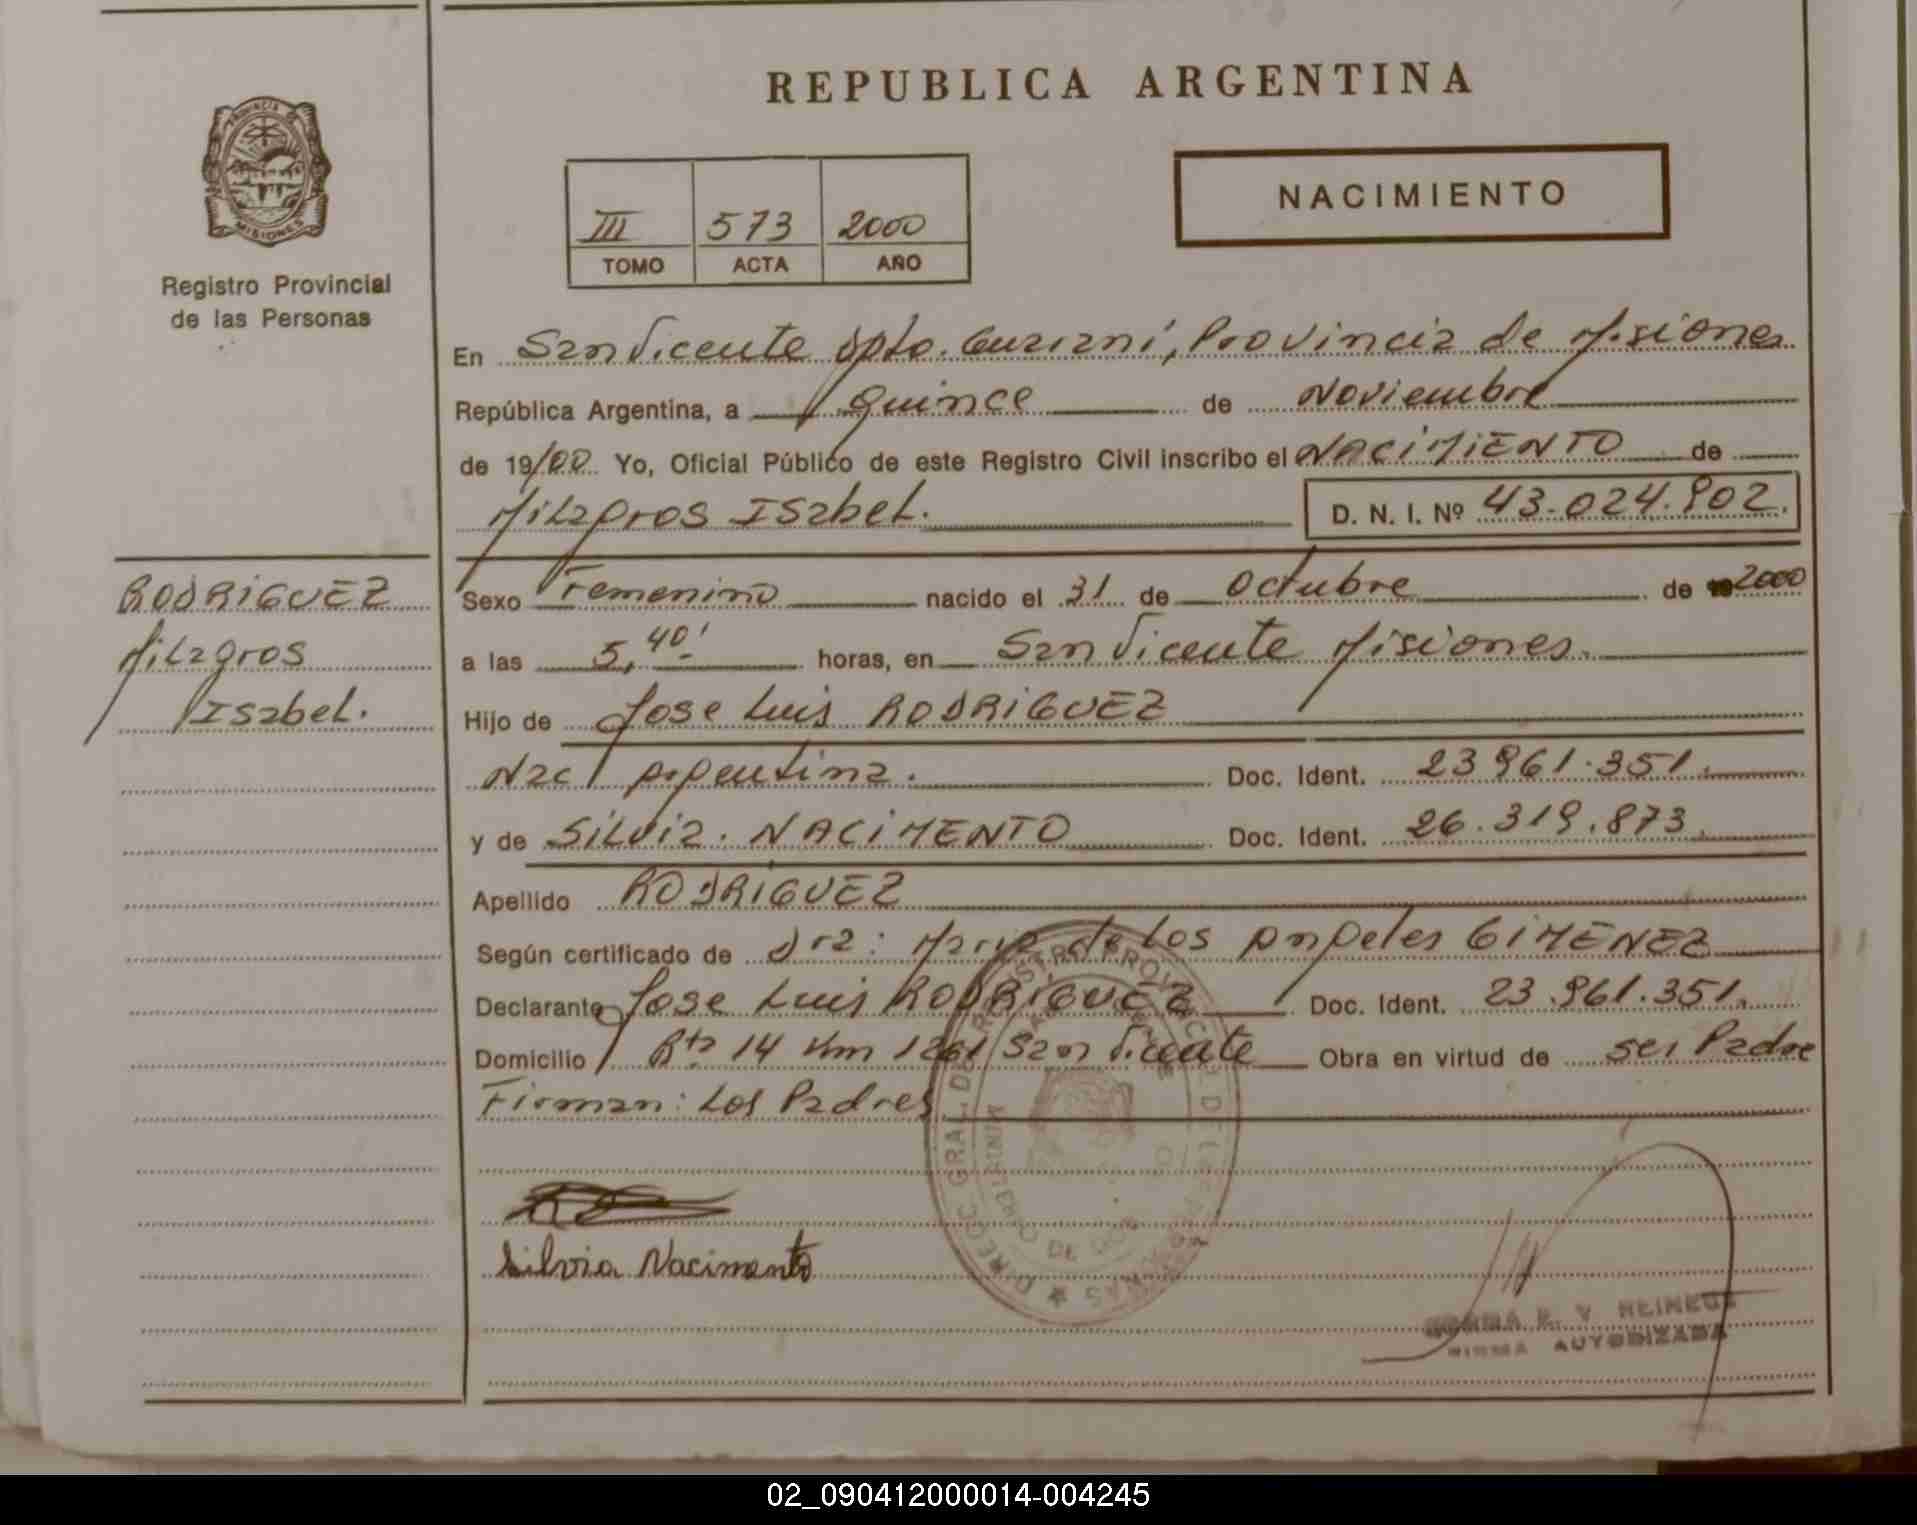 REPUBLICA ARGENTINA
PROVINCIA DE
MISIONES
Registro Provincial
de las Personas
III 573 2000
TOMO ACTA AÑO
NACIMIENTO
En San Vicente Dpto. Guaraní, Provincia de Misiones
República Argentina, a Quince de Noviembre
de 19/00 Yo, Oficial Público de este Registro Civil inscribo el NACIMIENTO de
Milagros Isabel. D. N. I. Nº 43.024.902.
RODRIGUEZ
Milagros
Isabel.
Sexo Femenino nacido el 31 de Octubre de 2000
a las 5,40' horas, en San Vicente Misiones.
Hijo de Jose Luis RODRIGUEZ
Nac. Argentina. Doc. Ident. 23.961.351.
y de SILVIA. NACIMENTO Doc. Ident. 26.319.873.
Apellido RODRIGUEZ
Según certificado de Dra: Maria de Los Angeles GIMENEZ
Declarante Jose Luis RODRIGUEZ Doc. Ident. 23.961.351.
Domicilio Rta 14 Km 1261 San Vicente Obra en virtud de ser Padre
Firman: Los Padres
Silvia Nacimento
V. REINEHR
FIRMA AUTORIZADA
02_090412000014-004245